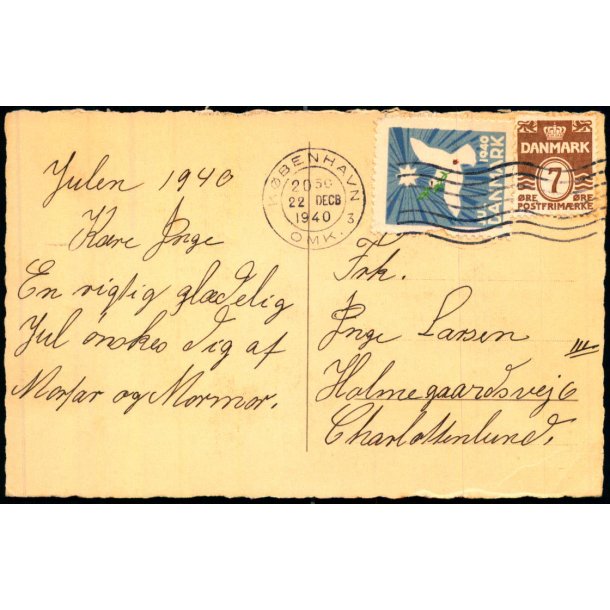 Julen 1940
Kære Inge
En rigtig glædelig
Jul ønskes Dig af
Morfar og Mormor.
KØBENHAVN
2030
22 DECB
1940
3
OMK.
JUL
DANMARK
1940
DANMARK
7
ØRE ØRE
POSTFRIMÆRKE
Frk.
Inge Larsen
III
Holmegaardsvej 6
Charlottenlund.